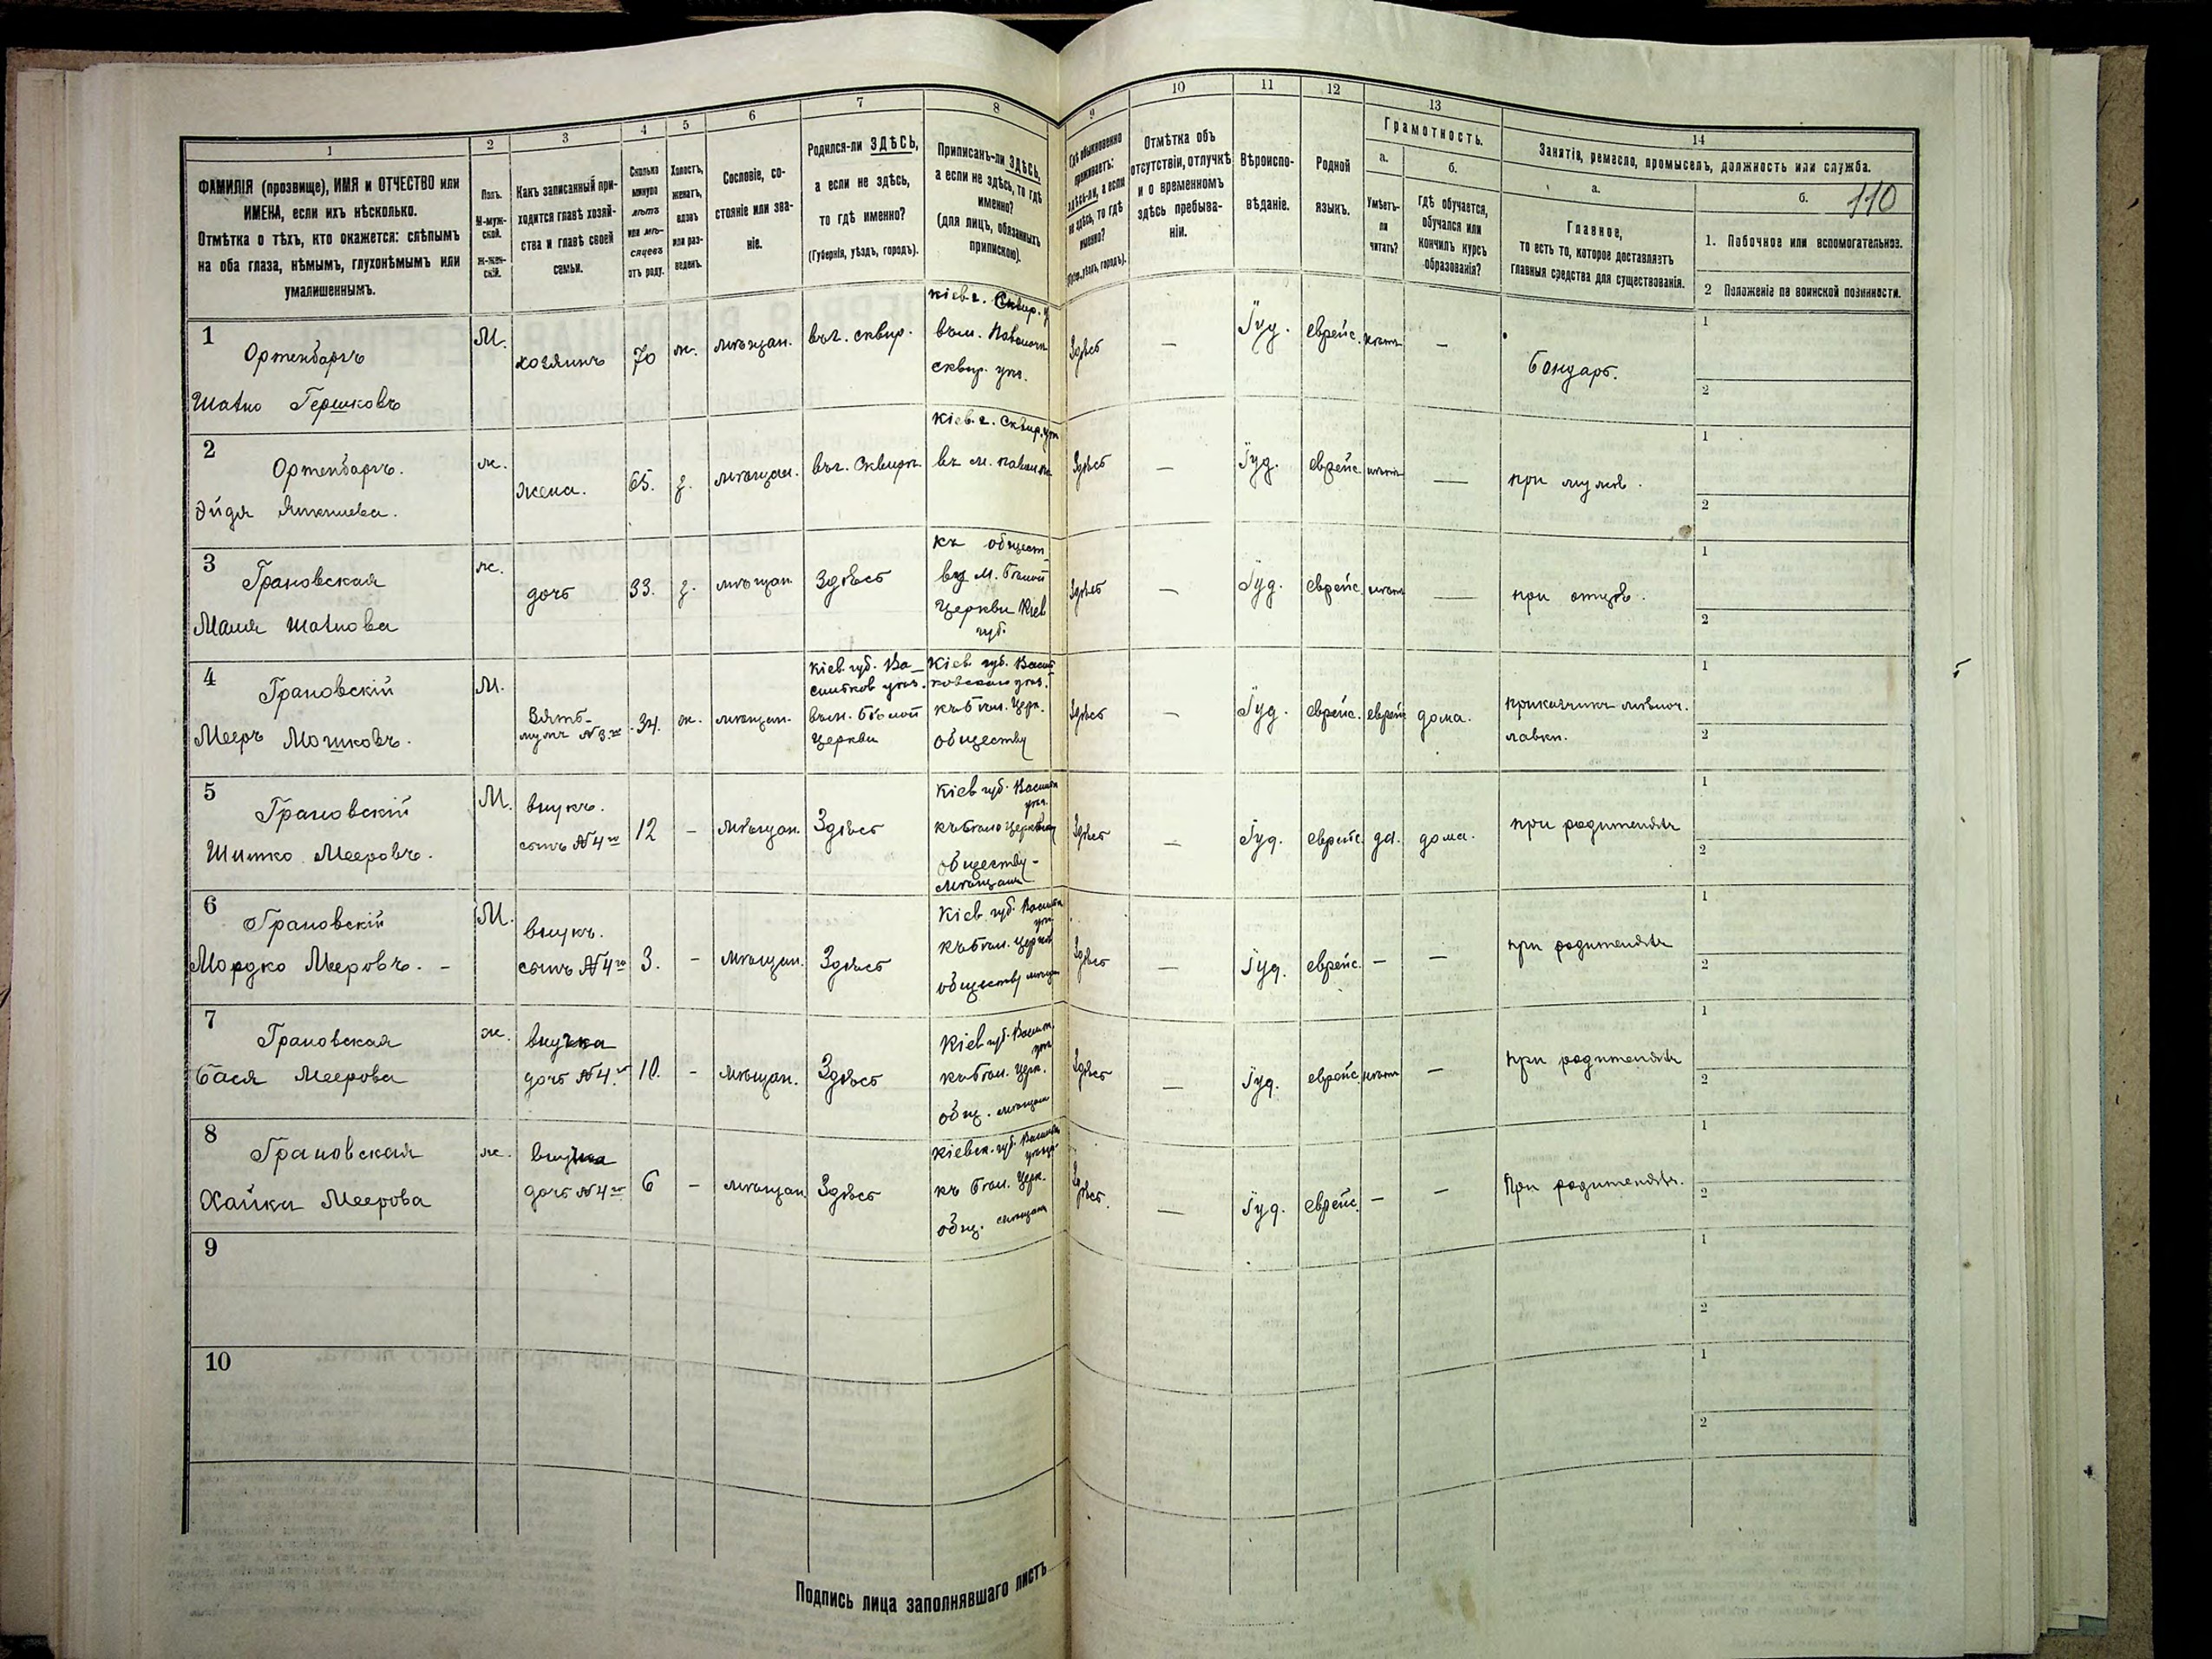 1
2
3
4
5
6
7
8
9
10
11
12
13
14
ФАМИЛІЯ (прозвище), ИМЯ и ОТЧЕСТВО или
ИМЕНА, если ихъ нѣсколько.
Отмѣтка о тѣхъ, кто окажется: слѣпымъ
на оба глаза, нѣмымъ, глухонѣмымъ или
умалишеннымъ.
Полъ.
М-муж-
ской.
Ж-жен-
скій.
Какъ записанный при-
ходится главѣ хозяй-
ства и главѣ своей
семьи.
Сколько
минуло
лѣтъ
или мѣ-
сяцевъ
отъ роду.
Холостъ,
женатъ,
вдовъ
или раз-
веденъ.
Сословіе, со-
стояніе или зва-
ніе.
Родился-ли ЗДѢСЬ,
а если не здѣсь,
то гдѣ именно?
(Губернія, уѣздъ, городъ).
Приписанъ-ли ЗДѢСЬ,
а если не здѣсь, то гдѣ
именно?
(для лицъ, обязанныхъ
припискою).
Гдѣ обыкновенно
проживаетъ:
здѣсь-ли, а если
не здѣсь, то гдѣ
именно?
(Губ., уѣздъ, городъ).
Отмѣтка объ
отсутствіи, отлучкѣ
и о временномъ
здѣсь пребыва-
ніи.
Вѣроиспо-
вѣданіе.
Родной
языкъ.
Грамотность.
а.
Умѣетъ-
ли
читать?
б.
гдѣ обучается,
обучался или
кончилъ курсъ
образованія?
Занятіе, ремесло, промыселъ, должность или служба.
а.
Главное,
то есть то, которое доставляетъ
главныя средства для существованія.
б.
110
1. Побочное или вспомогательное.
2 Положеніе по воинской повинности.
1
Ортенбергъ
Гершковъ
М.
хозяинъ
70
ж.
мѣщан.
въг. сквир.
Кіев г. Сквир. у
сквир. уѣз.
Здѣсь
—
Іуд.
еврейс.
—
Бондарь.
1
2
2
Ортенбергъ.
ж.
жена.
65.
з.
мѣщан.
въг. Сквирѣ
Кіев. г. Сквир. уѣз
Здѣсь
—
Іуд.
еврейс.
—
при мужѣ.
1
2
3
Грановская
Маня
ж.
дочь
33.
з.
мѣщан.
Здѣсь
къ общест
ву м. Бѣлой
Церкви Кіев
губ.
Здѣсь
—
Іуд.
еврейс.
—
при отцѣ.
1
2
4
Грановскій
Мееръ Мошковъ.
М.
Зять-
мужъ №3-й
34.
ж.
мѣщан.
Кіев губ. Ва-
сильков уѣз.
въ м. Бѣлой
Церкви
Кіев губ. Василь
ковскаго уѣз.
къ Бѣл. Церк.
обществу
Здѣсь
—
Іуд.
еврейс.
еврейс
дома.
лавки.
1
2
5
Грановскій
Шимко Мееровъ.
М.
внукъ.
сынъ №4-го
12
-
мѣщан.
Здѣсь
Кіев губ. Васильк
уѣз.
обществу-
мѣщан
Здѣсь
—
Іуд.
еврейс.
да.
дома.
при родителяхъ
1
2
6
Грановскій
Мордко Мееровъ. -
М.
внукъ.
сынъ №4-го
3.
-
мѣщан.
Здѣсь
Кіев губ. Васильк
уѣз.
къ Бѣл. Церков
обществу мѣщан
Здѣсь
—
Іуд.
еврейс.
—
—
при родителяхъ
1
2
7
Грановская
Бася Меерова
ж.
внучка
дочь №4-го
10.
-
мѣщан.
Здѣсь
Кіев губ. Васильк.
уѣз
къ Бѣл. Церк.
общ. мѣщан
Здѣсь
—
Іуд.
еврейс.
—
при родителяхъ
1
2
8
Грановская
Хайка Меерова
ж.
внучка
дочь №4-го
6
-
мѣщан
Здѣсь
Кіевск. губ. Васильк
къ Бѣл. Церк.
общ. мѣщан
Здѣсь.
—
Іуд.
еврейс.
—
—
При родителяхъ.
1
2
9
1
2
10
1
2
Подпись лица заполнявшаго листъ